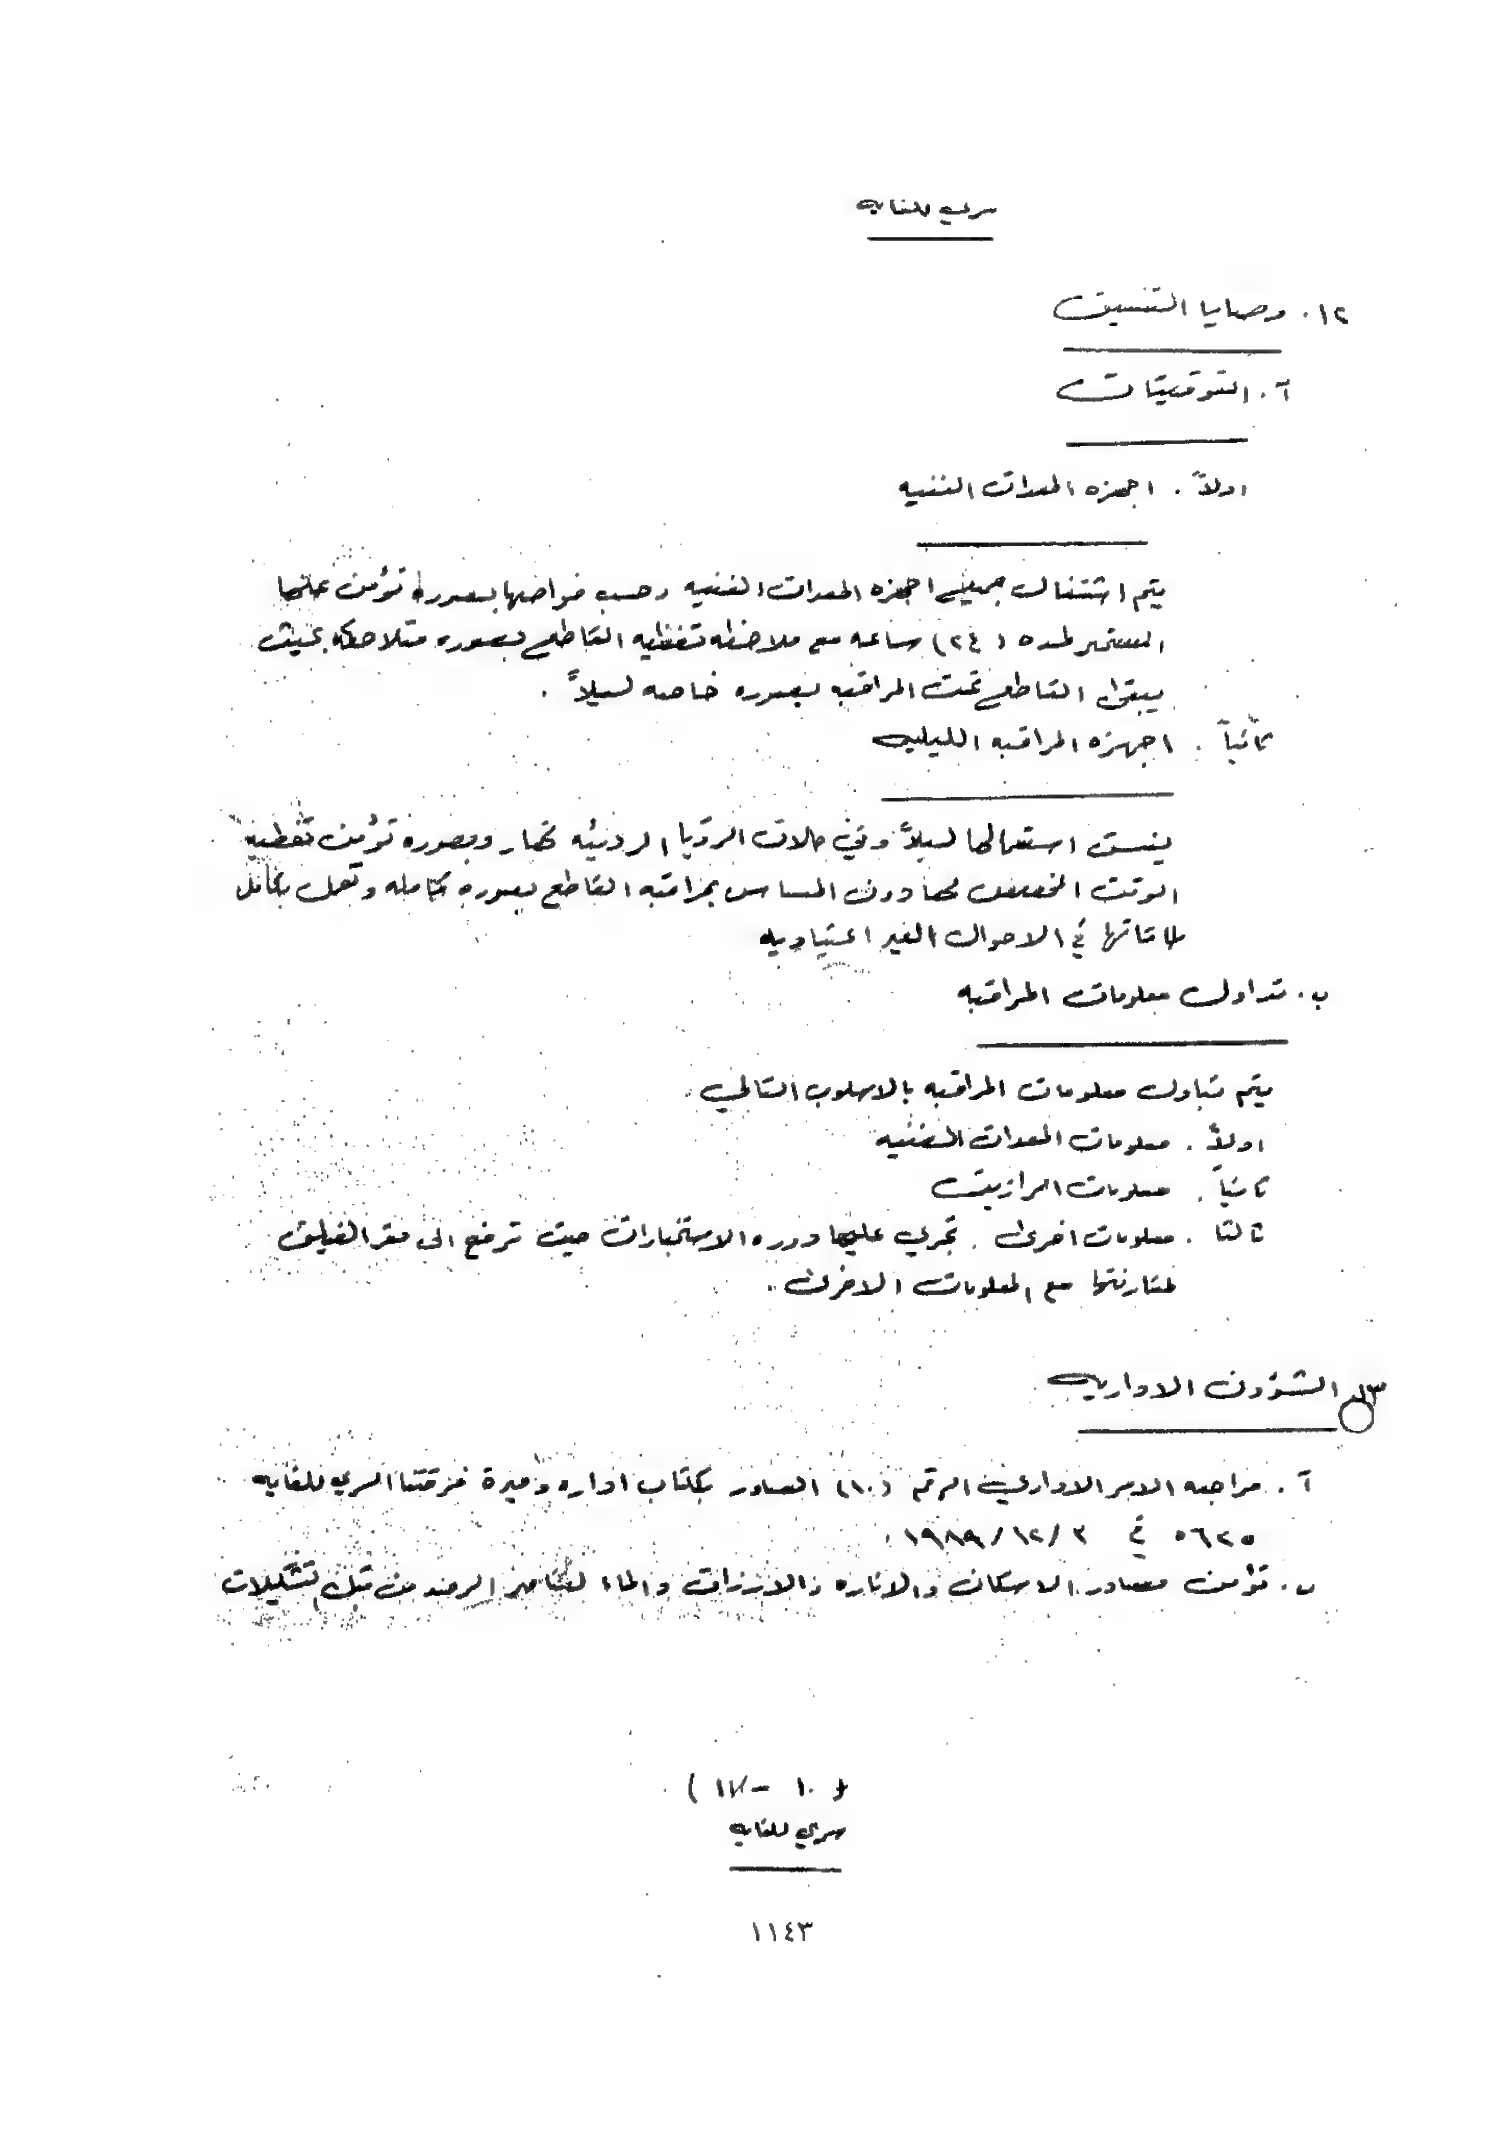 سري للغايه
١٢. وصايا التنسيق
آ. التوقيتات
اولاً. اجهزه المعدات الفنيه
يتم اشتغال جميع اجهزه المعدات الفنيه وحسب خواصها بصوره تؤمن عملها
المستمر لمده (٢٤) ساعه مع ملاحظه تغطيه القاطع بصوره متلاحقه بحيث
يبقى القاطع تحت المراقبه بصوره خاصه ليلاً.
ثانياً. اجهزه المراقبه الليليه
ينسق استعمالها ليلاً وفي حالات الرؤيا الرديئه نهار وبصوره تؤمن تغطيه
الوقت المخصص لها دون المساس بمراقبه القاطع بصوره كامله وتعمل بكامل
طاقاتها في الاحوال الغير اعتياديه
ب. تداول معلومات المراقبه
يتم تبادل معلومات المراقبه بالاسلوب التالي.
اولاً. معلومات المعدات الفنيه
ثانياً. معلومات الرازيت
ثالثا. معلومات اخرى. تجري عليها دوره الاستخبارات حيث ترفع الى مقر الفيلق
لمقارنتها مع المعلومات الاخرى.
١٣. الشؤون الاداريه
آ. مراجعه الامر الاداري الرقم (١٠) الصادر بكتاب اداره وميرة فرقتنا السري للغايه
٥٦٢٥ في ٣/١٢/١٩٨٩.
ب. تؤمن مصادر الاسكان والاناره والارزاق والماء لعناصر الرصد من قبل تشكيلات
(١٠ - ١٧)
سري للغايه
١١٤٣